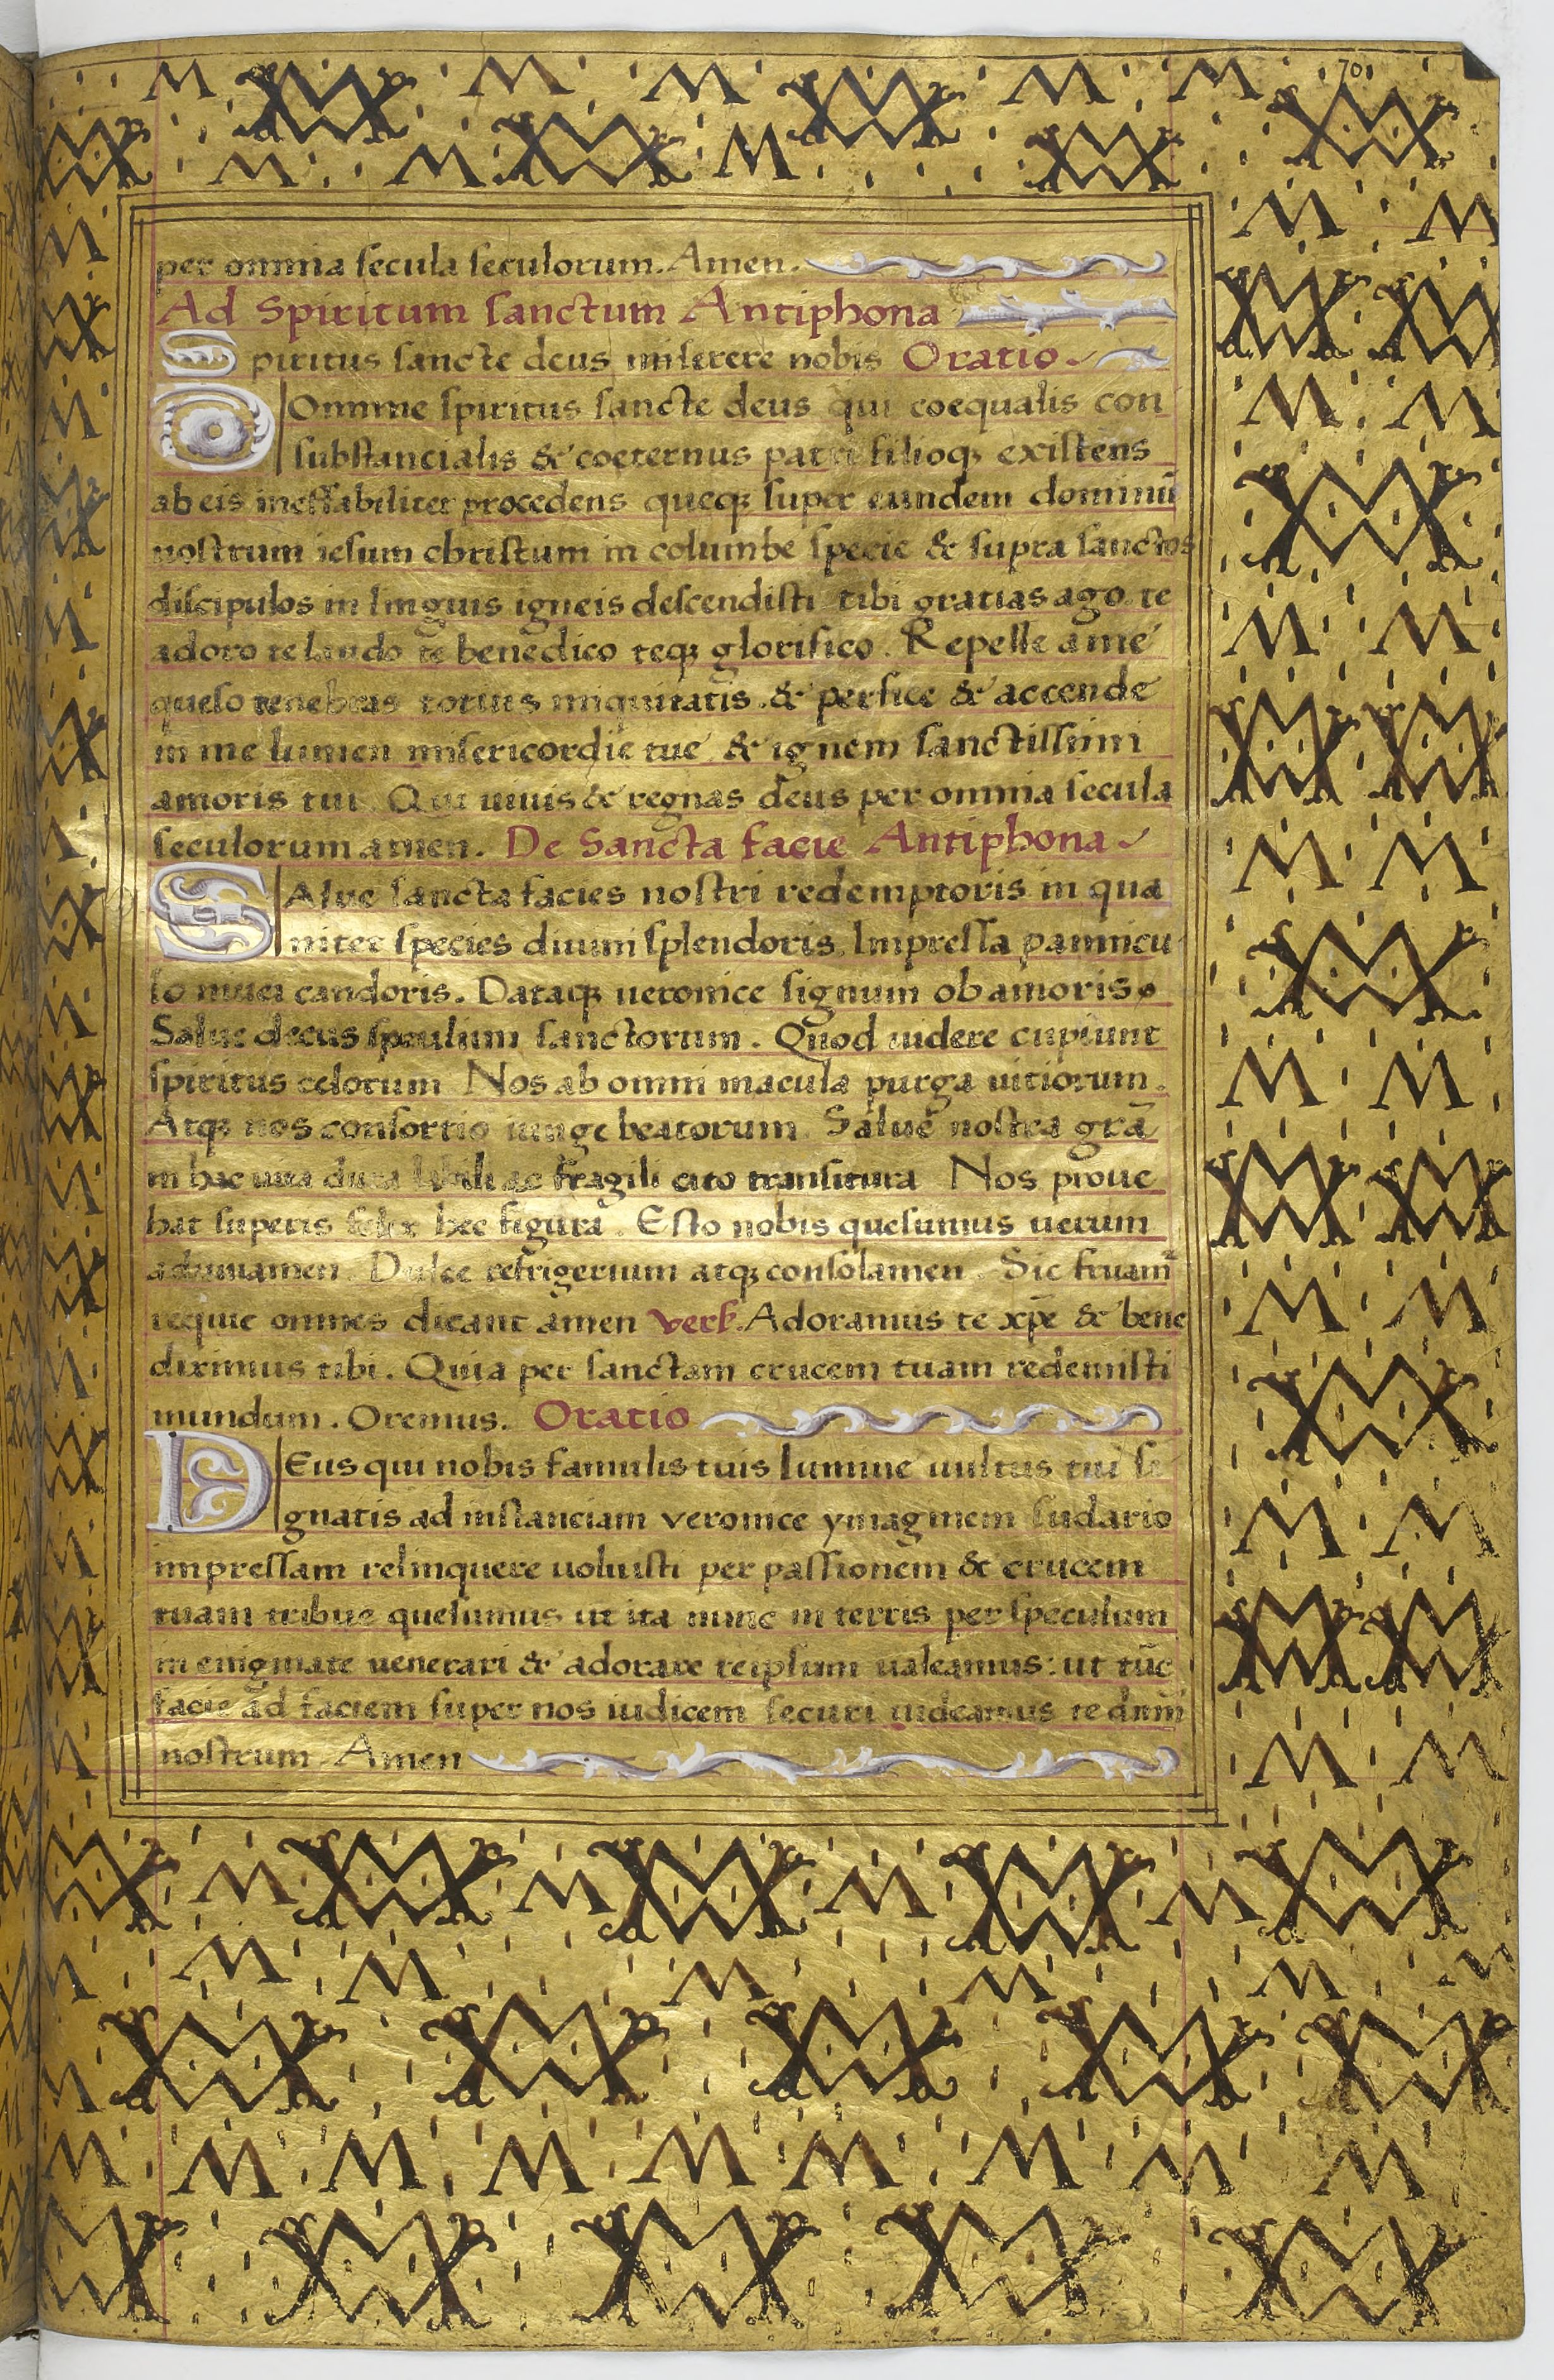 70
per omnia secula seculorum. Amen.
Ad Spiritum sanctum Antiphona
Spiritus sancte deus miserere nobis Oratio
DOmine spiritus sancte deus qui coequalis con
substancialis & coeternus patri filioqꝫ existens
ab eis ineffabiliter procedens queqꝫ super eundem dominū
nostrum iesum christum in columbe specie & supra sanctos
discipulos in linguis igneis descendisti tibi gratias ago te
adoro te laudo te benedico teqꝫ glorifico. Repelle a me
queso tenebras totius iniquitatis. & perfice & accende
in me lumen misericordie tue & ignem sanctissimi
amoris tui Qui uiuis & regnas deus per omnia secula
seculorum amen. De Sancta facie Antiphona
SAlue sancta facies nostri redemptoris in qua
nitet species diuini splendoris. Impressa pannicu
lo niuei candoris. Dataqꝫ ueronice signum ob amoris.
Salue decus speculum sanctorum. Quod uidere cupiunt
spiritus celorum Nos ab omni macula purga uitiorum.
Atqꝫ nos consortio iunge beatorum Salue nostra grā
in hac uita dura labili ac fragili cito transitura Nos proue
hat superis felix hec figura. Esto nobis quesumus uerum
adiuuamen. Dulce refrigerium atqꝫ consolamen. Sic fruam̄
requie omnes dicant amen vers. Adoramus te xp̄e & bene
dicimus tibi. Quia per sanctam crucem tuam redemisti
mundum. Oremus. Oratio
DEus qui nobis famulis tuis lumine uultus tui si
gnatis ad instanciam veronice ymaginem sudario
impressam relinquere uoluisti per passionem & crucem
tuam tribue quesumus ut ita nunc in terris per speculum
in enigmate uenerari & adorare teipsum ualeamus: ut tūc
facie ad faciem super nos iudicem securi uideamus te dnm̄
nostrum Amen